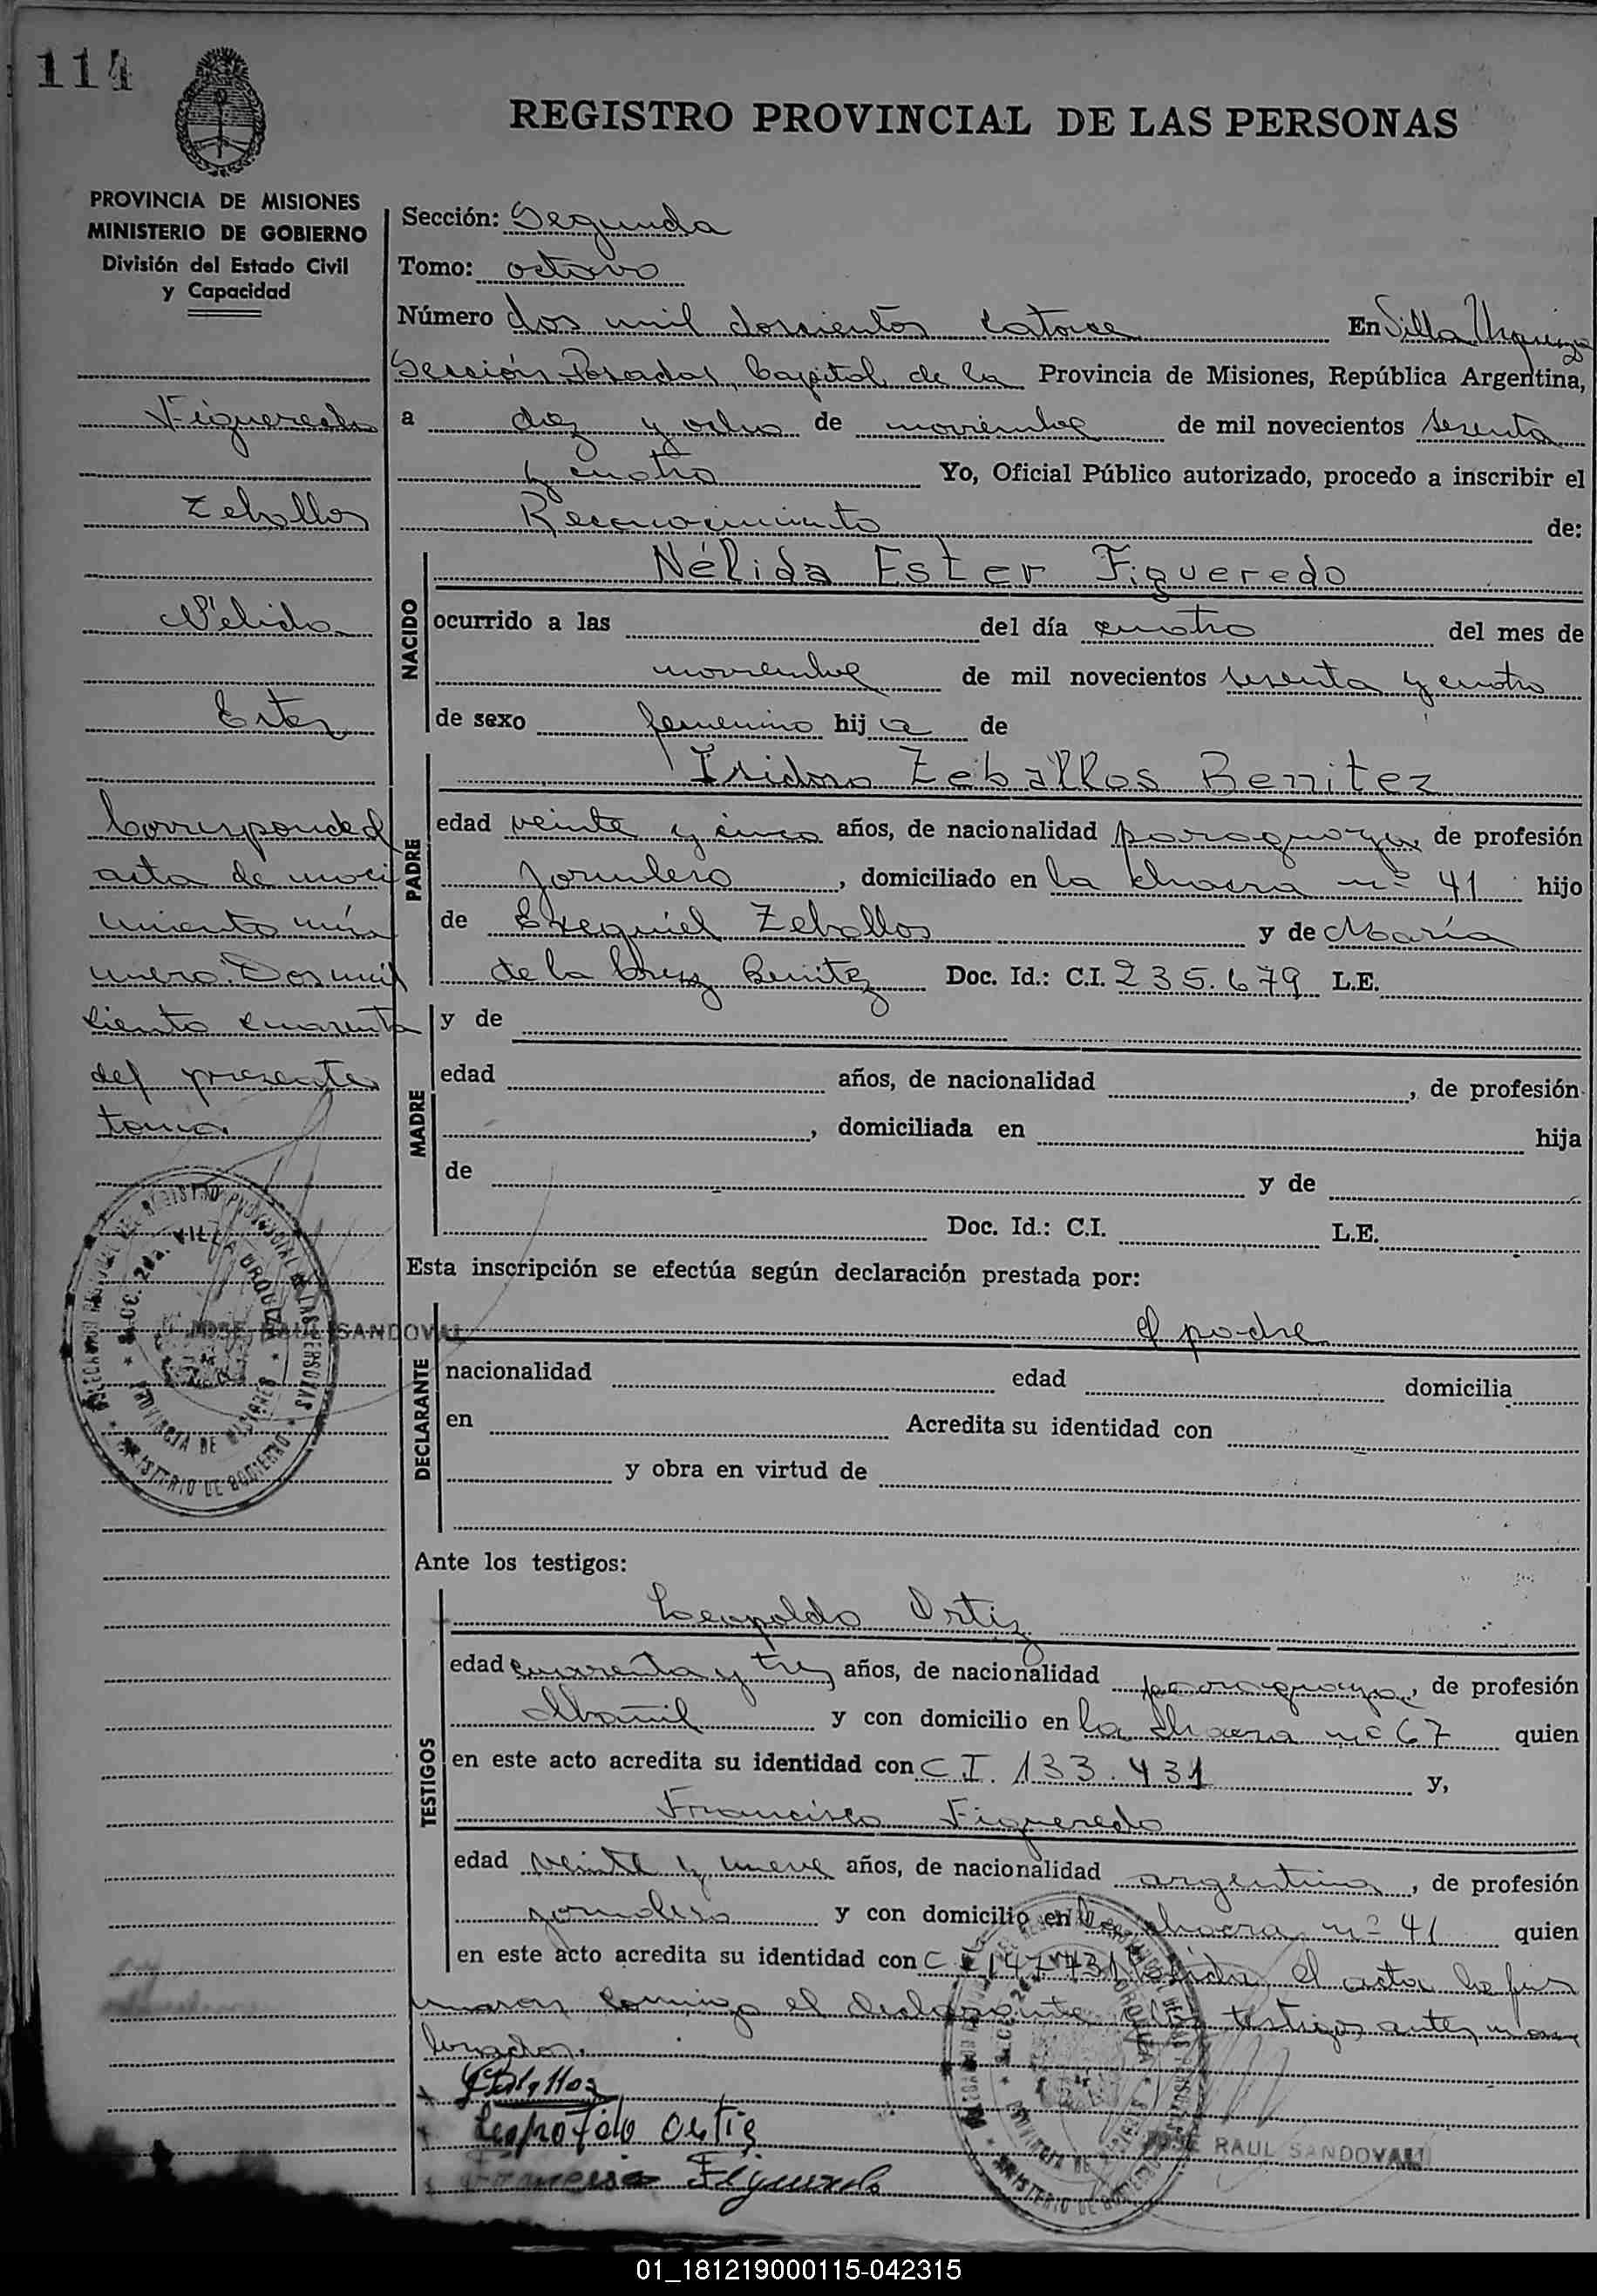 114
REGISTRO PROVINCIAL DE LAS PERSONAS
PROVINCIA DE MISIONES
MINISTERIO DE GOBIERNO
División del Estado Civil
y Capacidad
Figueredo
Zeballos
Nélida
Ester
Corresponde al
acta de naci
miento nú
mero Dos mil
ciento cuarenta
del presente
tomo.
JOSE RAUL SANDOVAL
Sección: Segunda
Tomo: octavo
Número dos mil doscientos catorce En Villa Urquiza
Sección Posadas, Capital de la Provincia de Misiones, República Argentina,
a diez y ocho de noviembre de mil novecientos sesenta
y cuatro Yo, Oficial Público autorizado, procedo a inscribir el
Reconocimiento de:
NACIDO
Nélida Ester Figueredo
ocurrido a las del día cuatro del mes de
noviembre de mil novecientos sesenta y cuatro
de sexo femenino hija de
PADRE
Isidoro Zeballos Benitez
edad veinte y cinco años, de nacionalidad paraguaya, de profesión
jornalero, domiciliado en la chacra nº 41 hijo
de Exequiel Zeballos y de María
de la Cruz Benitez Doc. Id.: C.I. 235.679 L.E.
MADRE
y de
edad años, de nacionalidad , de profesión
, domiciliada en hija
de y de
Doc. Id.: C.I. L.E.
Esta inscripción se efectúa según declaración prestada por:
DECLARANTE
el padre
nacionalidad edad domicilia
en Acredita su identidad con
y obra en virtud de
Ante los testigos:
TESTIGOS
Leopoldo Ortiz
edad cuarenta y tres años, de nacionalidad paraguaya, de profesión
Albañil y con domicilio en la chacra nº 67 quien
en este acto acredita su identidad con C I. 133.431 y,
Francisco Figueredo
edad veinte y nueve años, de nacionalidad argentina, de profesión
jornalero y con domicilio en la chacra nº 41 quien
en este acto acredita su identidad con C I 147.731 Leída el acta la fir
maron conmigo el declarante y los testigos antes men
cionados.
Zeballos
Leopoldo Ortiz
Francisco Figueredo
JOSE RAUL SANDOVAL
01_181219000115-042315